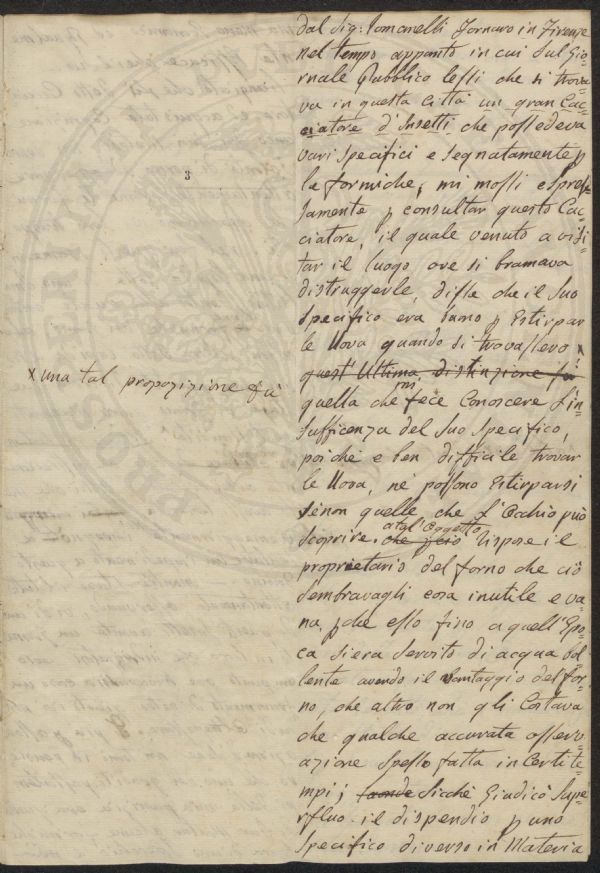 dal Sig: Tomanelli Fornaro in Firenze
nel tempo appunto in cui sul Gio=
rnale Pubblico lessi che si trova=
va in questa Città un gran Cac=
ciatore d'Insetti che possedeva
vari specifici e segnatamente p
le formiche, mi mossi espres=
samente p consultar questo Cac=
ciatore, il quale venuto a visi=
tar il luogo ove si bramava
distruggerle, disse che il suo
specifico era buono p Estirpar
le Uova quando si trovassero x
quest'Ultima distinzione fu
x una tal proposizione fù
quella che mi fece Conoscere l'in=
sufficenza del suo specifico,
poichè e ben difficile trovar
le Uova, nè possono Estirparsi
senon quelle che l'Occhio può
scoprire. a tal'Oggetto che perciò rispose il
proprietario del forno che ciò
sembravagli cosa inutile e va=
na, pche esso fino a quell'Epo=
ca si era servito di acqua bol=
lente avendo il Vantaggio del for=
no, che altro non gli Costava
che qualche accurata osserv=
azione spesso fatta in Certi te=
mpi; laonde Sicchè Giudicò Supe=
rfluo il dispendio p uno
specifico diverso in Materia
3